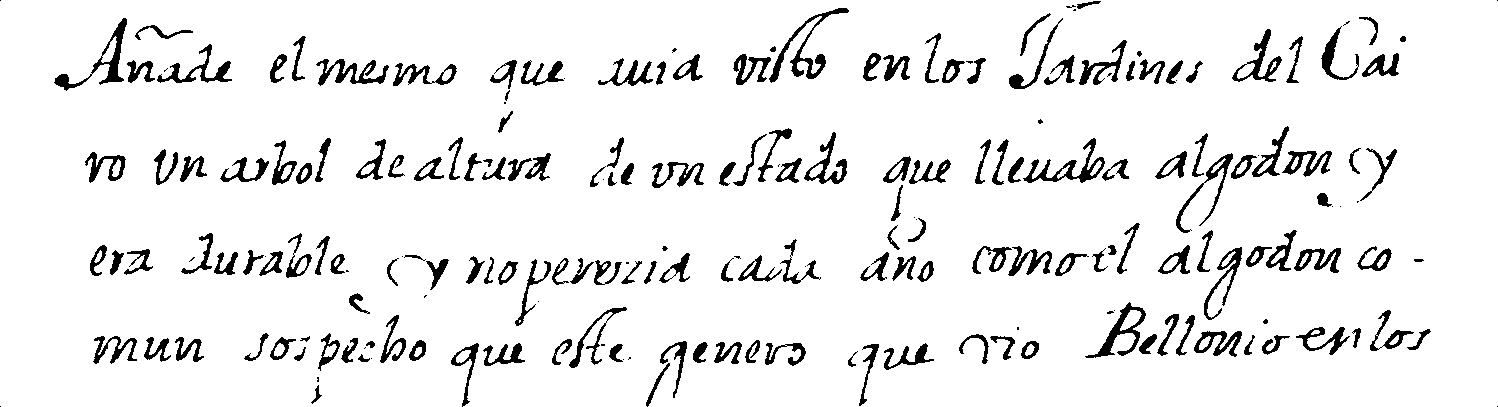 Añade el mesmo que auia visto en los Jardines del Cai
ro vn arbol de altura de vn estado que lleuaba algodon y
era durable y no perezia cada año como el algodon co-
mun sospecho que este genero que vio Bellonio en los